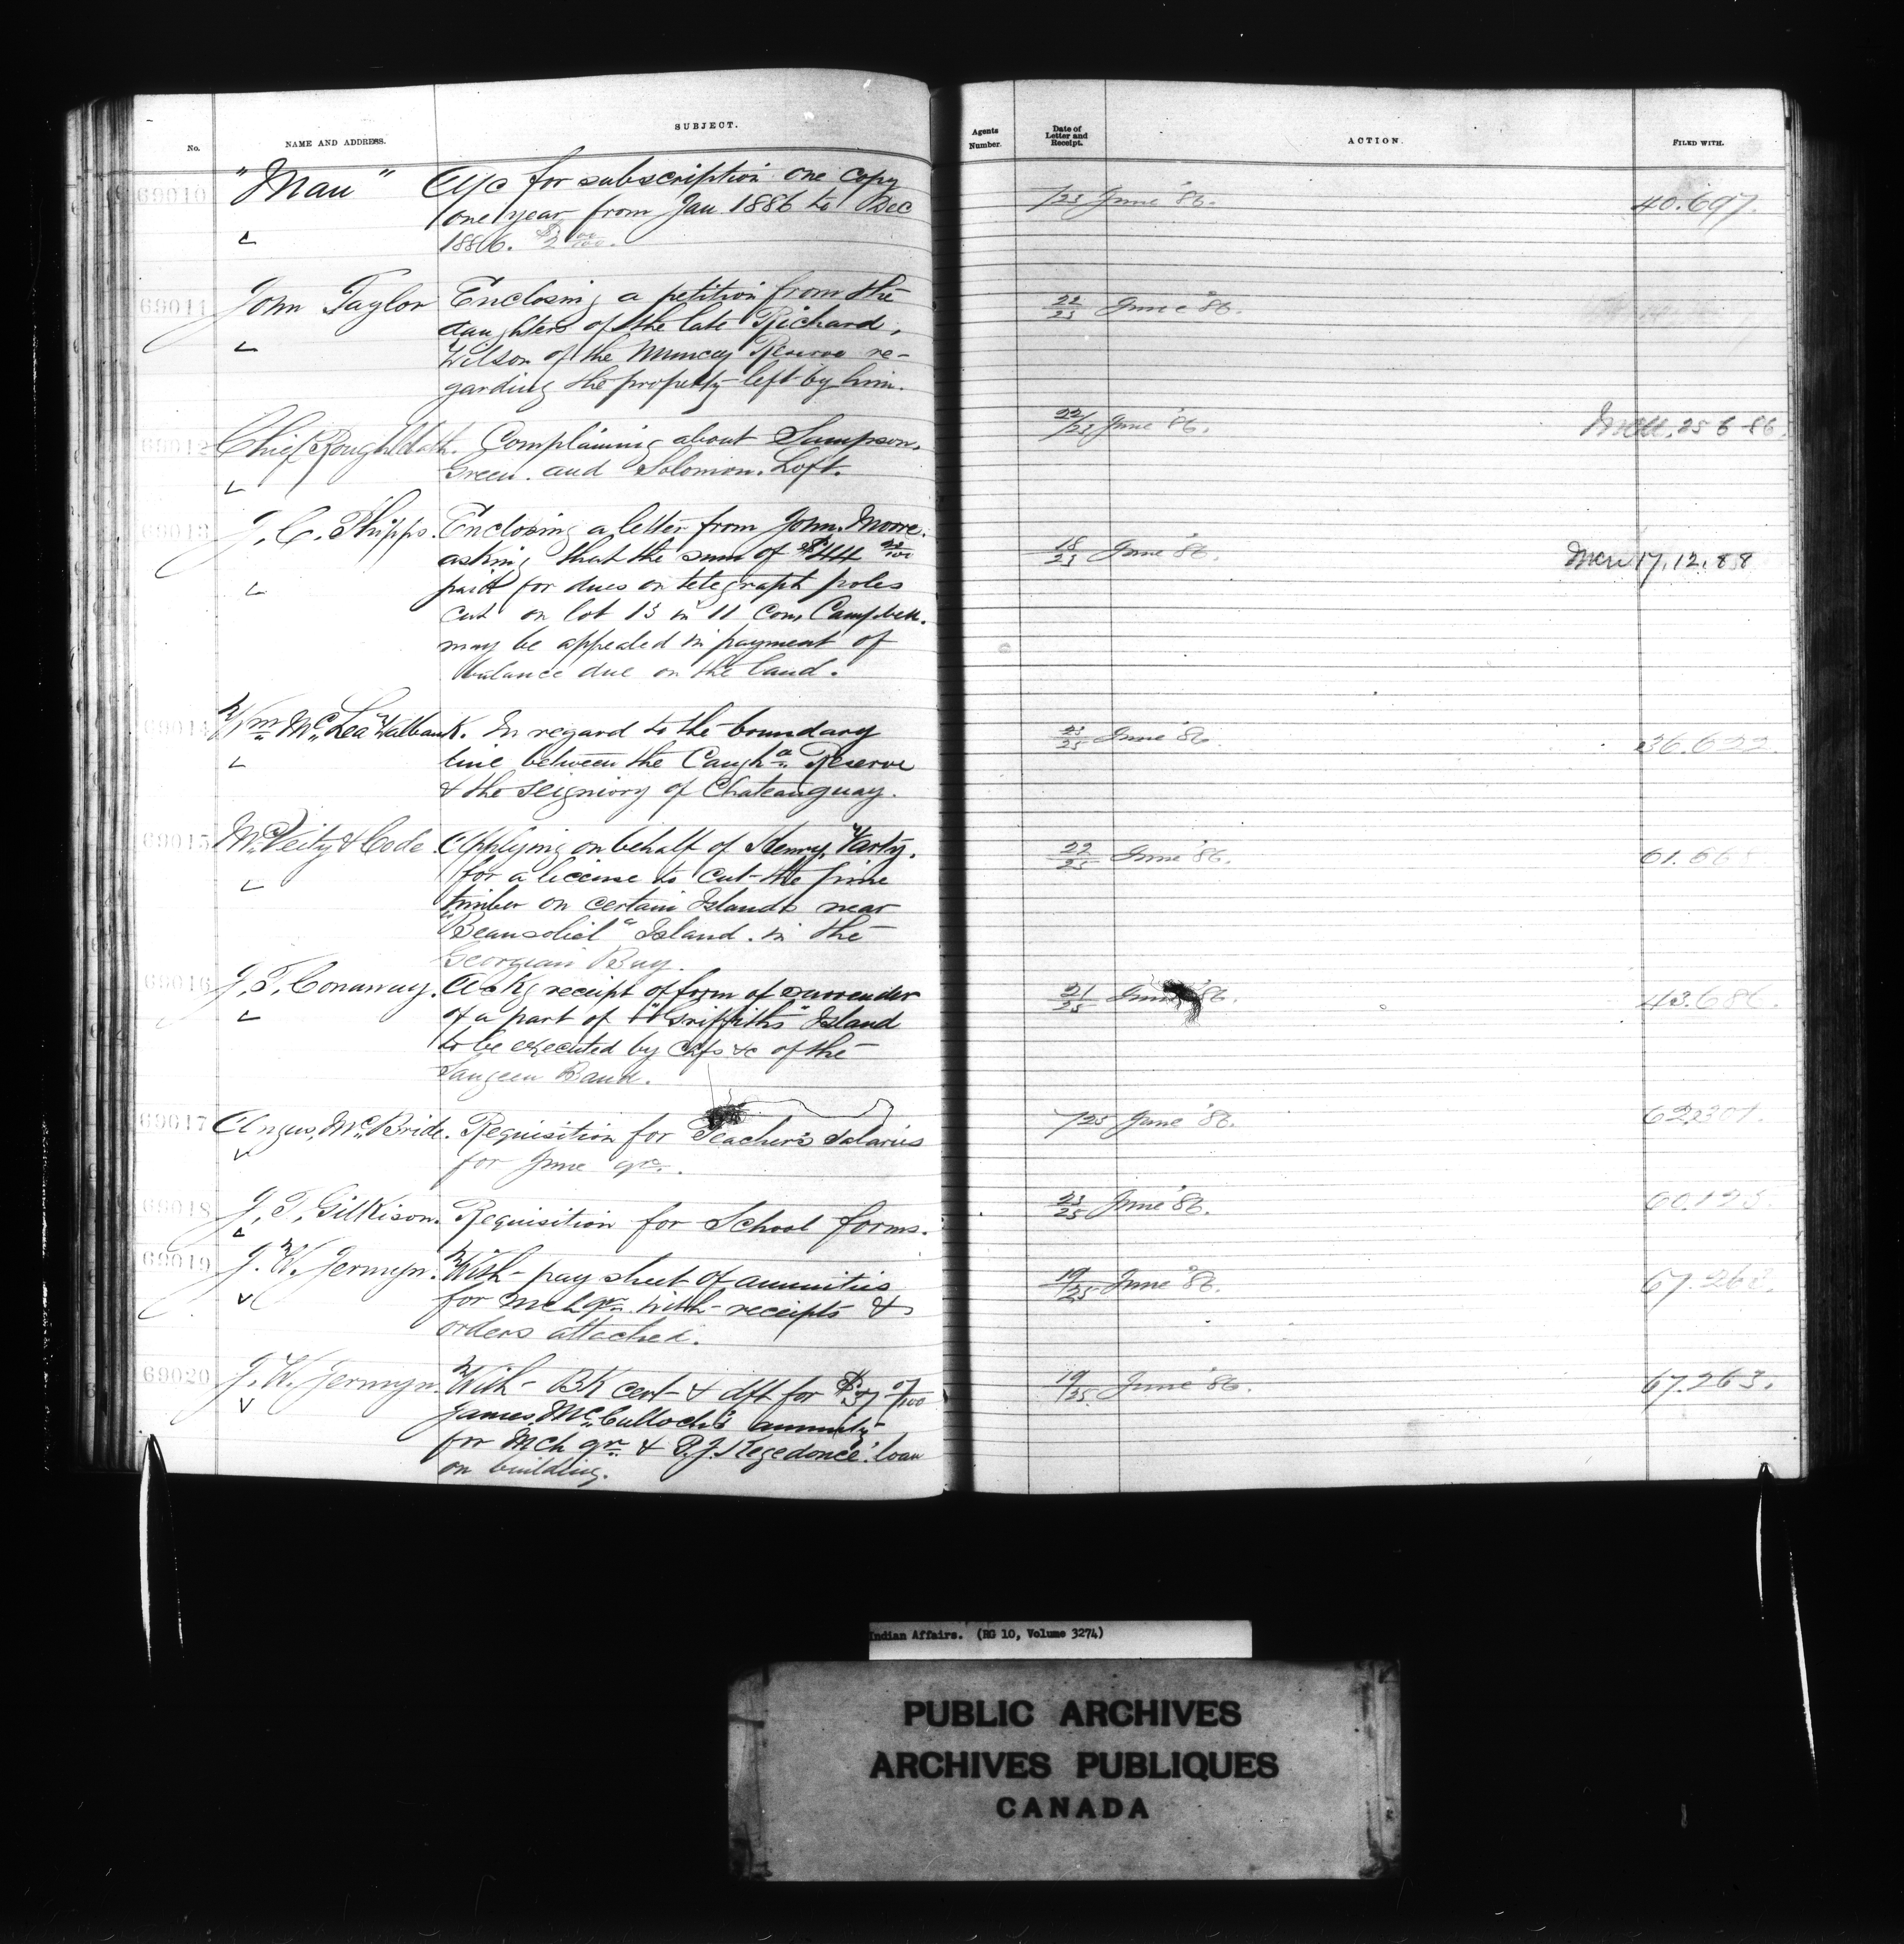 No.
NAME AND ADDRESS.
SUBJECT.
Agents
Number.
Date of
Letter and
Receipt.
ACTION.
FILED WITH.
69010 "Man" A/c for subscription one copy /25 June '86. 40.697.
one year from Jan 1886 to Dec
1886. $2 00/100.
69011 John Taylor Enclosing a petition from the 22/25 June '86.
daughters of the late Richard
Wilson of the Muncey Reserve re-
garding the property left by him.
69012 Chief Rough Cloth. Complaining about Sampson 22/25 June '86. Mem. 25 6-86.
Green and Solomon Loft.
69013 J. C. Phipps. Enclosing a letter from John Moore 18/25 June '86. Mem 17.12.88
asking that the sum of $44
paid for dues on telegraph poles
cut on lot 13 in 11 Con, Campbell.
may be appealed in payment of
balance due on the land.
69014 Wm McLea Walbank. In regard to the boundary 23/25 June '86. 36.622.
line between the Caugha Reserve
& the Seigniory of Chateauguay.
69015 McVeity & Code. Applying on behalf of Henry Varty. 22/25 June '86.
for a license to cut the pine
timber on certain Islands near
"Beausoliel" Island. in the
Georgian Bay.
69016 J. T. Conaway. Ackg receipt of form of surrender 21/25 June '86. 43.686.
of a part of "Griffiths" Island
to be executed by Chfs &c of the
Saugeen Band.
69017 Angus McBride. Requisition for Teacher's Salaries /25 June '86. 62.307.
for June qr.
69018 J. T. Gilkison. Requisition for School forms. 23/25 June '86.
69019 J. W. Jermyn. With pay sheet of annuities 19/25 June '86. 67.263.
for Mch qr. with receipts &
orders attached.
69020 J. W. Jermyn. With BK cert & dft for $37 07/100 19/25 June '86. 67.263.
James McCulloch's annuity
for Mch qr & P.J. Kegedonce' loan
on building.
Indian Affairs. (RG 10, Volume 3274)
PUBLIC ARCHIVES
ARCHIVES PUBLIQUES
CANADA